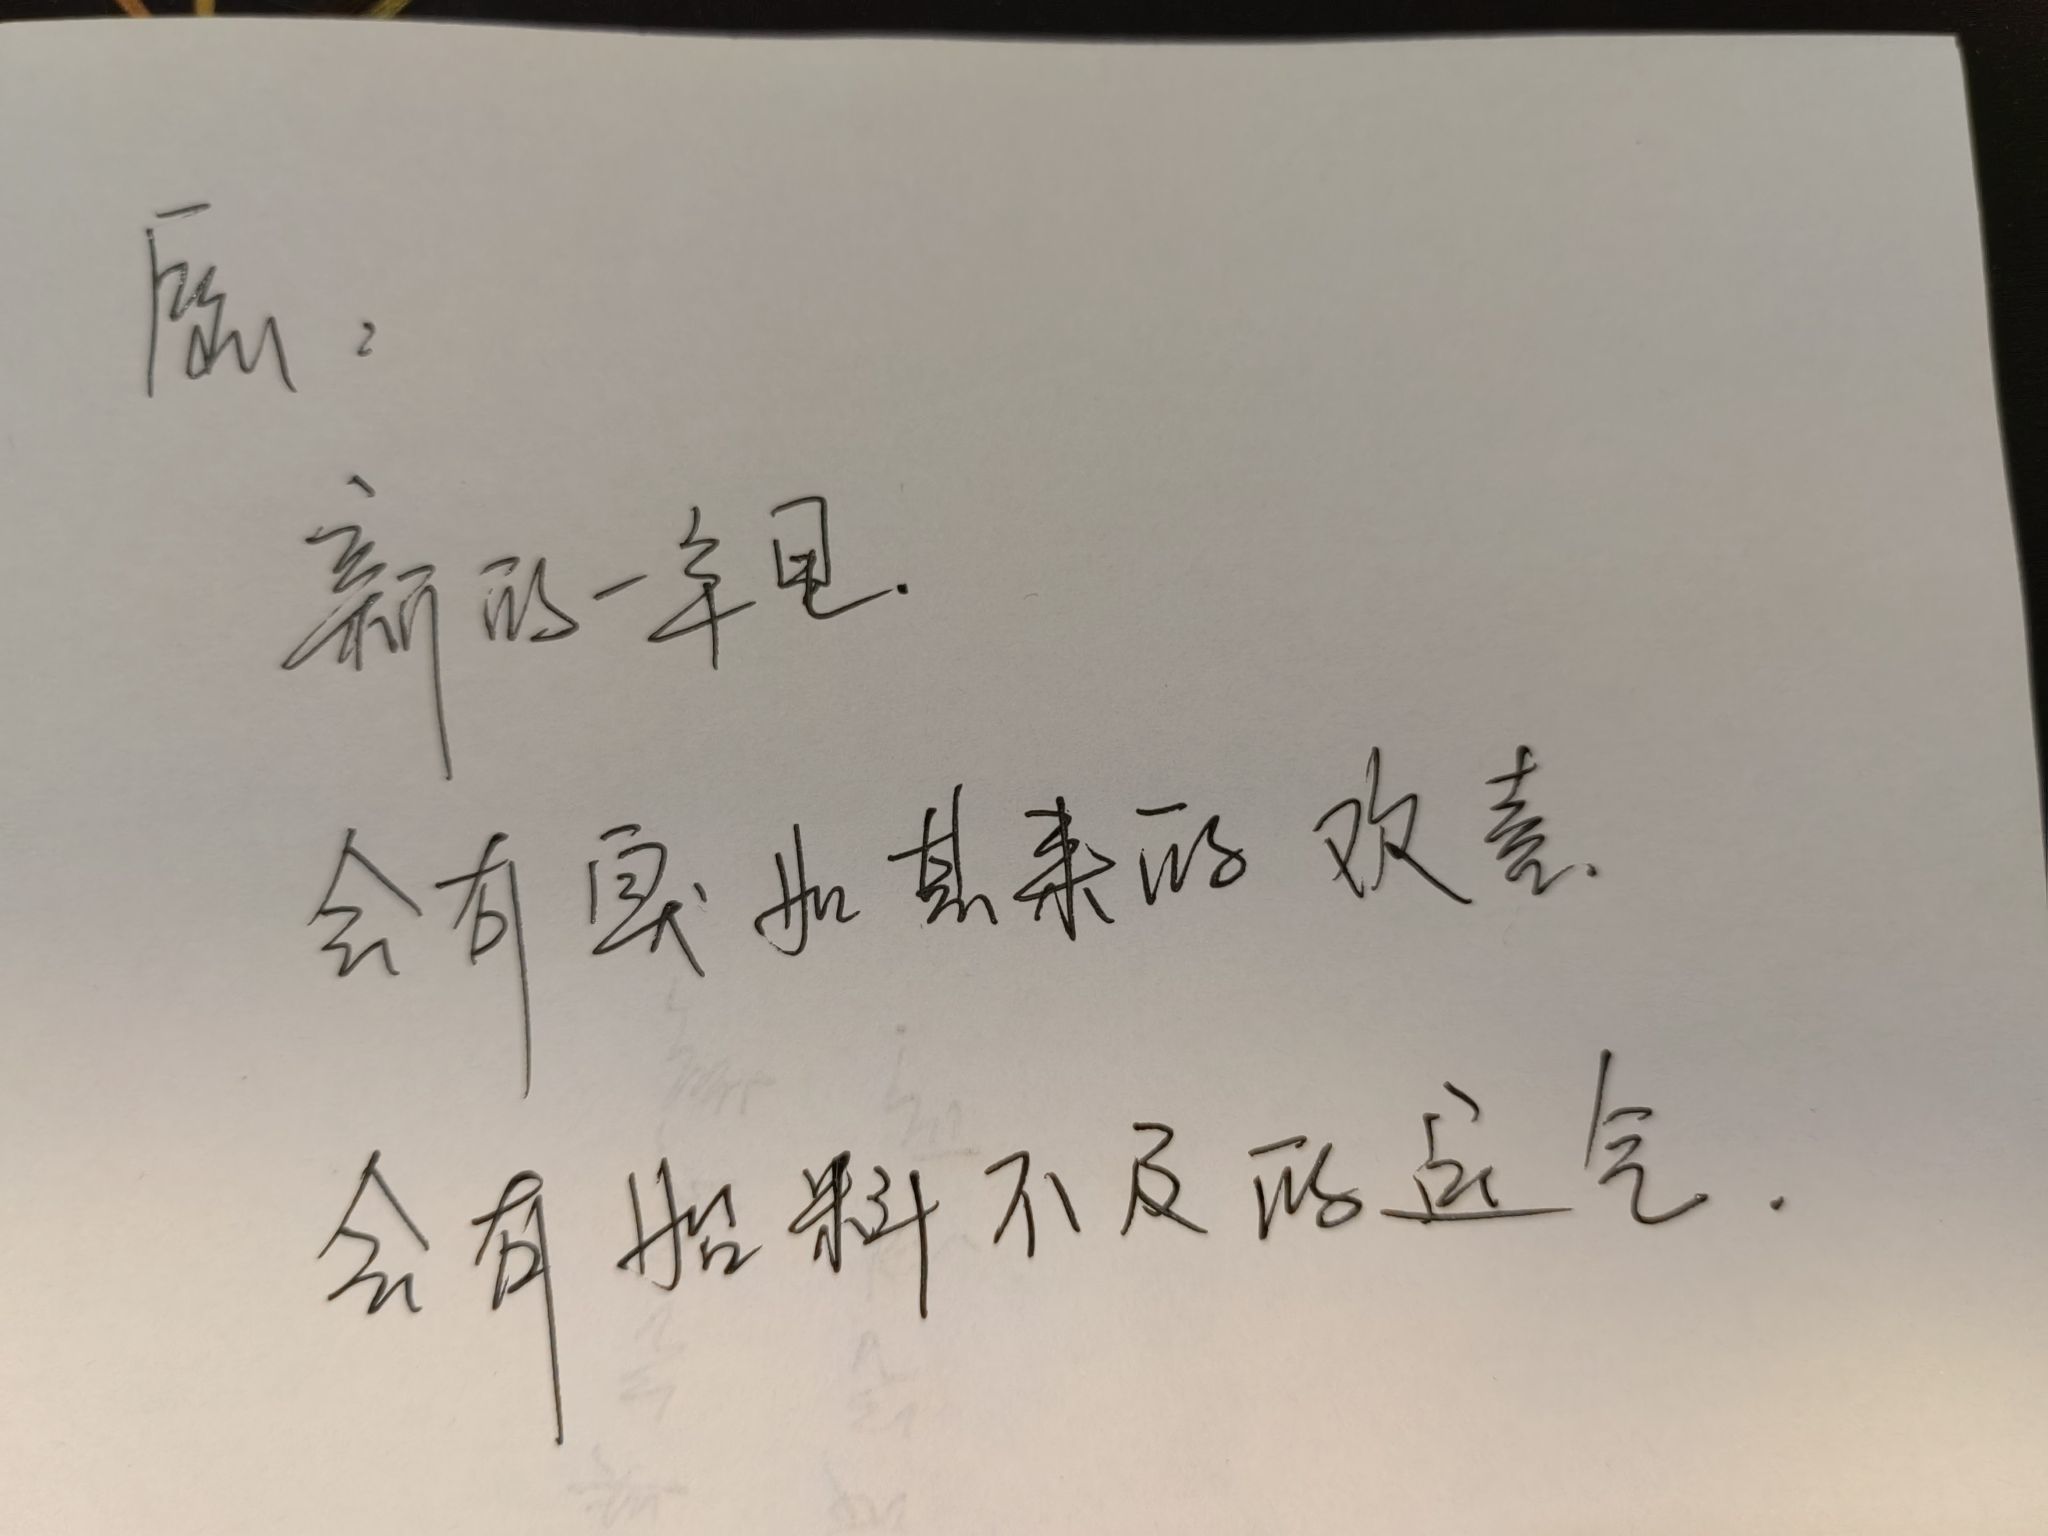 愿:
新的一年里.
会有突如其来的欢喜.
会有始料不及的运气.